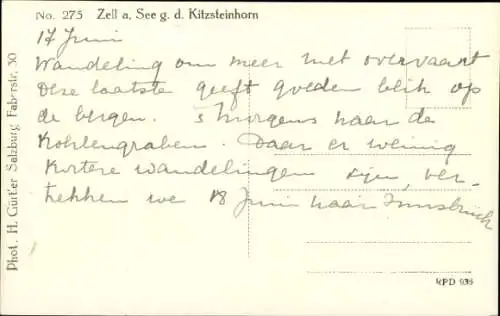 No. 275 Zell a, See g. d. Kitzsteinhorn
17 Juni
Wandeling om meer met overvaart
Deze laatste geeft goeden blik op
de bergen. 's morgens naar de
Kohlengraben. Daar er weinig
kortere wandelingen zijn, ver-
trekken we 18 Juni naar Innsbruck
Phot. H. Gürtler Salzburg Faberstr. 30
KPD 938